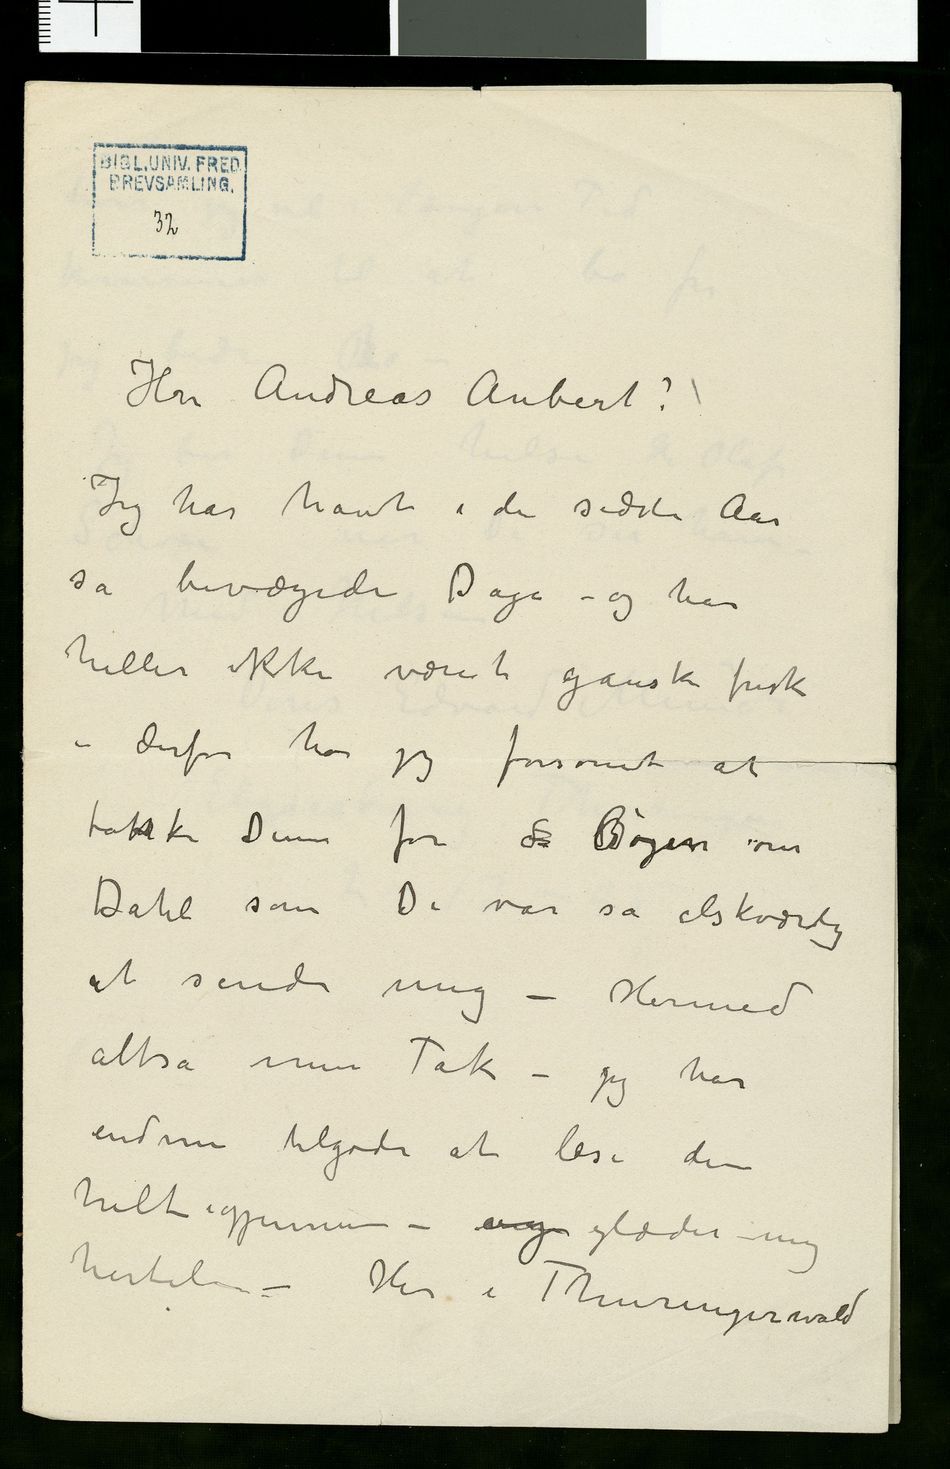 BIBL.UNIV.FRED.
BREVSAMLING.
32
Herr Andreas Aubert!
Jeg har havt i de sidste Aar
sa bevægede Dage – og har
heller ikke været ganske frisk
– derfor har jeg forsømt at
takke Dem for Bogen om
Dahl som De var sa elskværdig
at sende mig – Hermed
altsa min Tak – jeg har
endnu tilgode at læse den
helt igjennem – glæder mig
hertil – Her i Thuringerwald